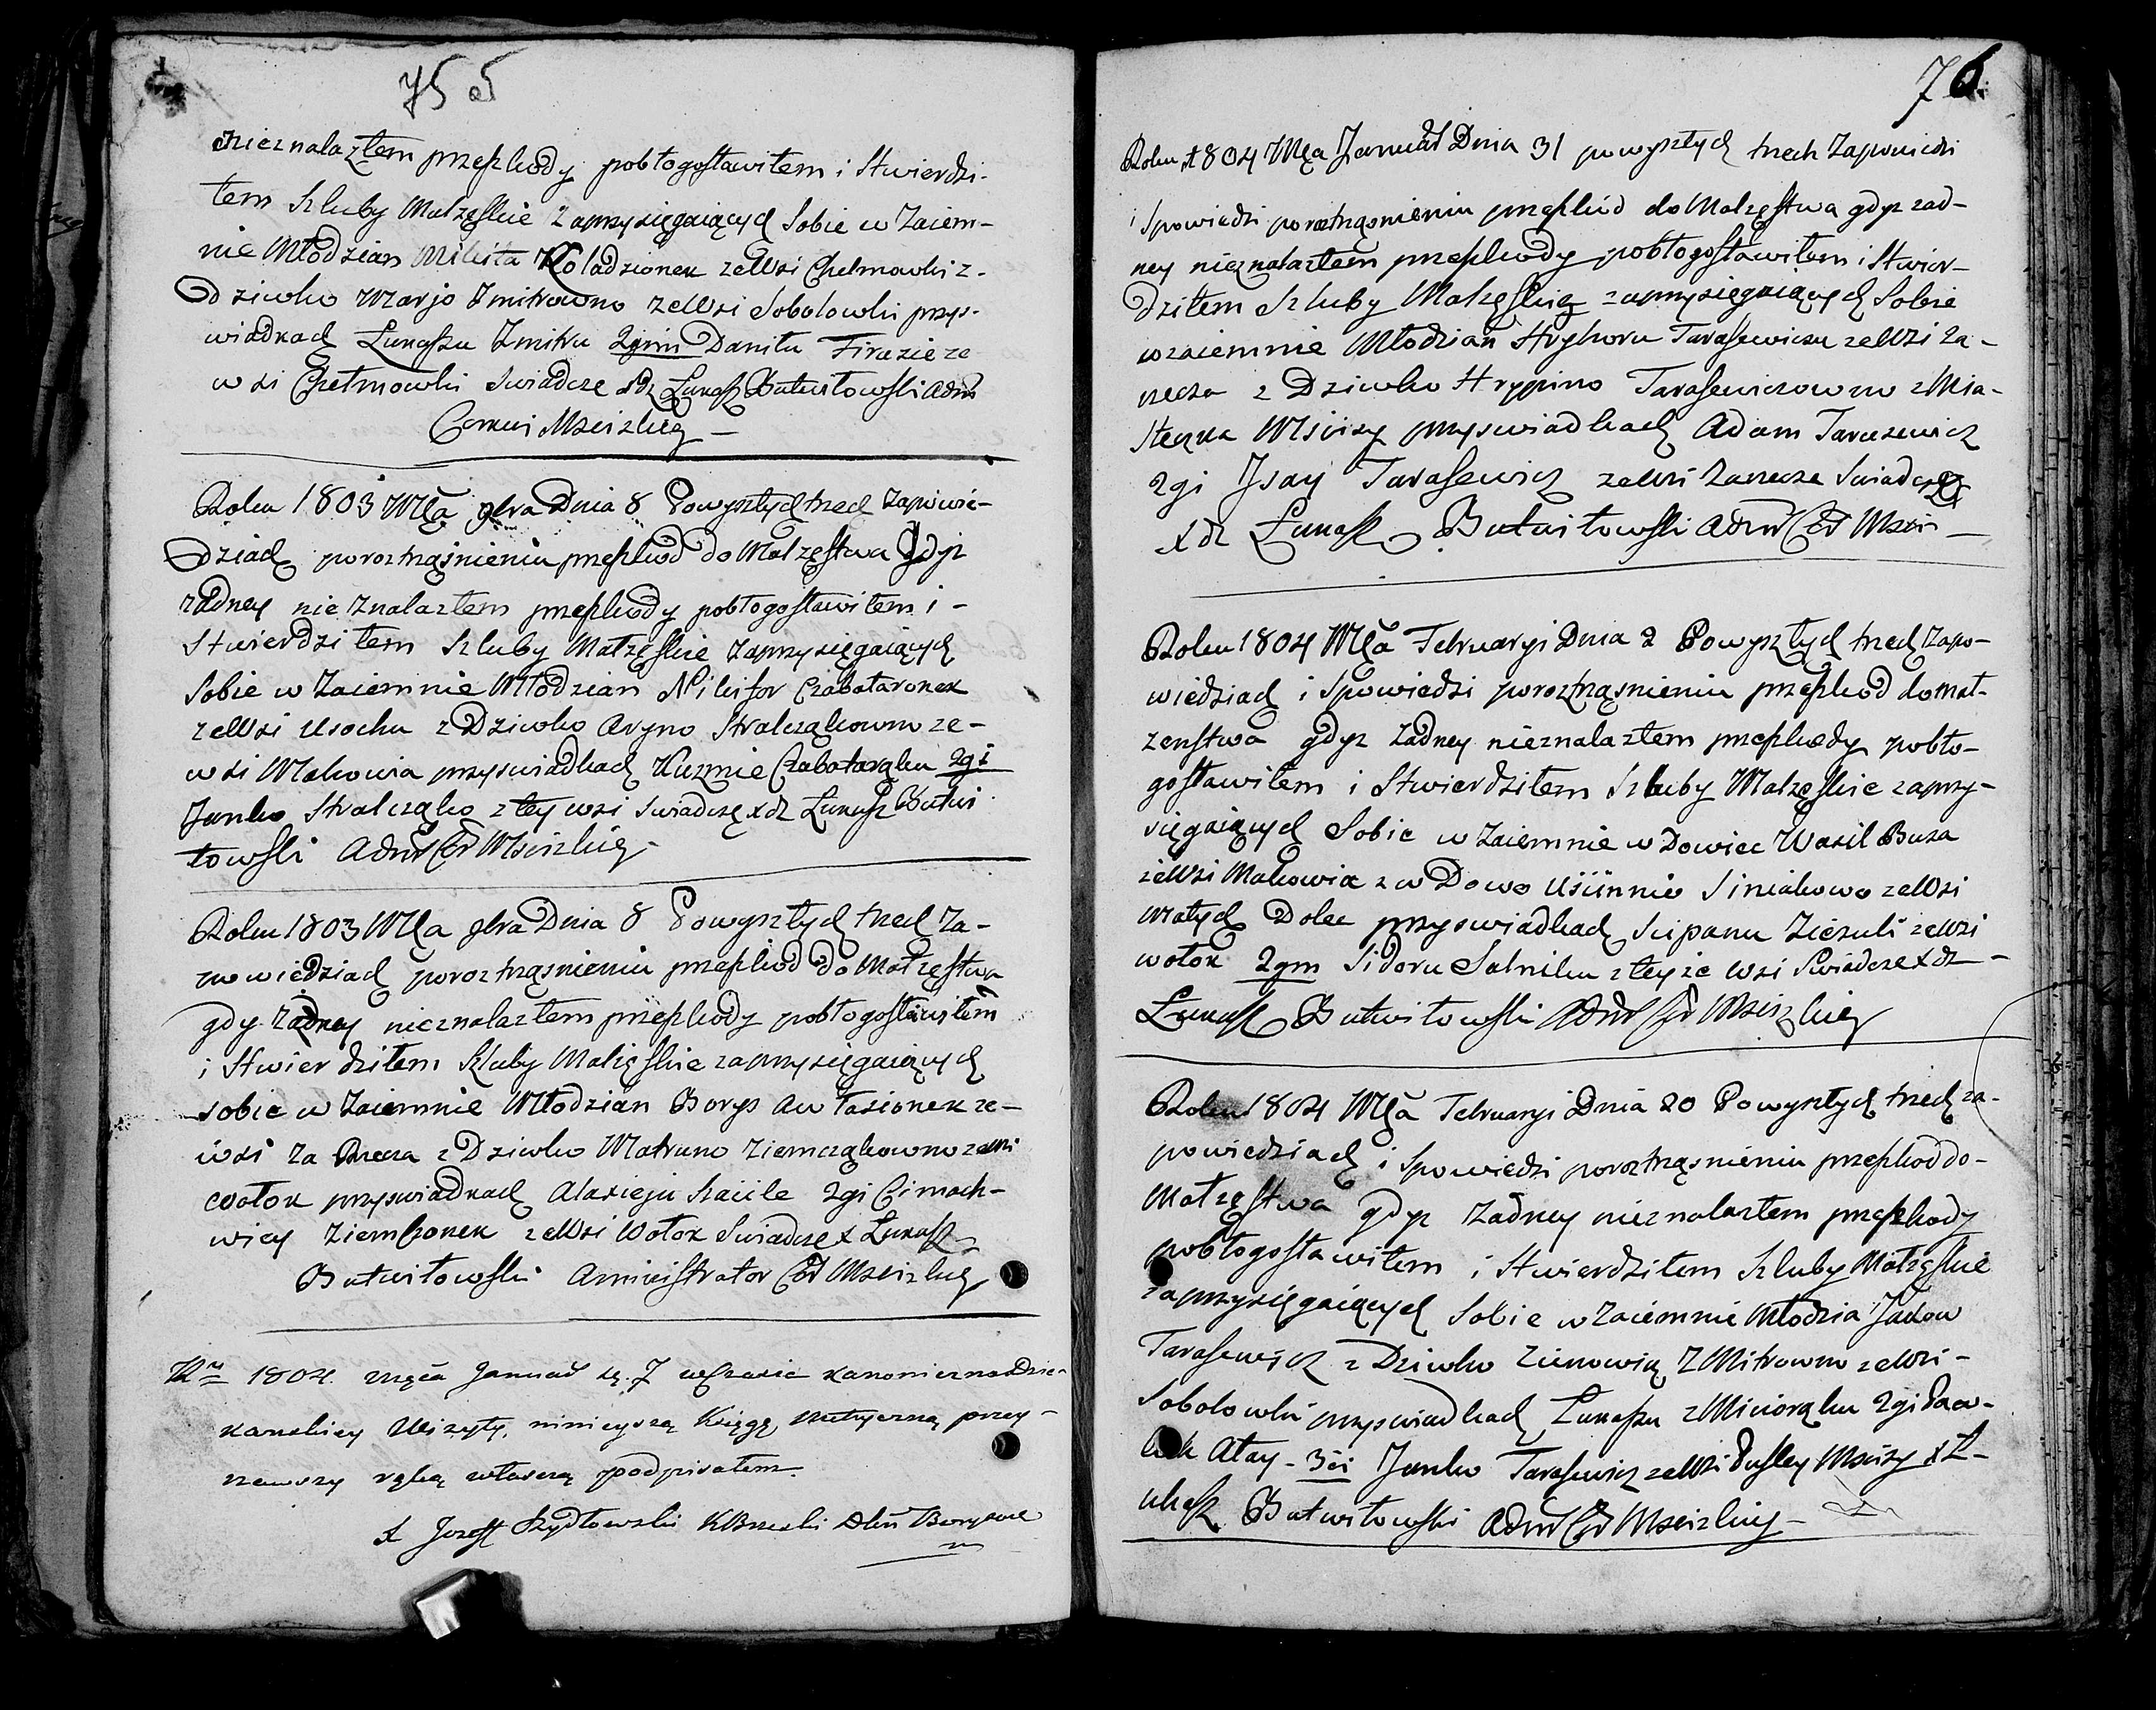 75 5
nieznalazłem przeszkody pobłogosławiłem i Stwierdzi-
łem Szluby Małzęskie Zaprzysięgaiących Sobie w Zaiem-
nie Młodzian Mikita Koladzionek zeWsi Chełmowki z-
Dziwko Marjo Zmitrowno zeWsi Sobolowki przys-
wiadkach Łukaszu Zmitru 2gim Daniłu Firuzie ze
wsi Chełmowki Swiadcze xdz Łukasz Butwiłowski Adm
Cerkwi Msciskiey
Roku 1803 Mca 9bra Dnia 8 Powyszłych trzech Zapowie-
dziach poroztrząsnieniu przeszkod do Małzęstwa Gdyz
zadney nie Znalazłem przeszkody pobłogosławiłem i -
Stwierdziłem Szluby Małzęskie Zaprzysięgaiących
Sobie w Zaiemnie Młodzian Nikifor Czabotaronek
zeWsi Usochu z Dziwko Aryno Stralcząkowno ze-
wsi Makowia przyswiadkach Kuzmie Czabotarąku 2gi
Janko Stralcząko z tey wsi Swiadczę xdz Łukasz Butwi
łowski Adm Cer Msciskiey
Roku 1803 Mca 9bra Dnia 8 Powyszłych trzech Za-
powiedziach poroztrząsnieniu przeszkod do Małzęstwa
gdy Zadney nieznalazłem przeszkody pobłogosławiłem
i Stwierdziłem Szluby Małzęskie zaprzysięgaiących
sobie w Zaiemnie Młodzian Borys Awłasionek ze-
wsi Za Rzecza z Dziwko Matruno Ziemcząkowno zeWsi
Wołok przyswiadkach Alaxieju 2gi Cimach-
wiey Ziemczonek zeWsi Wołok Swiadcze x Łukasz
Butwiłowski Aminis­trator Cer Msciskiey
1804. Mca Januar d. 7 wczasie kanoniczno Dzie-
kanskiey Wizyty, ninieyszą Księgę Metryczną przey-
rzawszy ręką własną podpisałem.
X Jozef Szydłowski K Brzeski Dkń Borysow
76
Roku 1804 Mca Januar Dnia 31 powyszłych trzech Zapowiedzi
i Spowiedzi poroztrząsnieniu przeszkód do Małzęstwa gdyz zad-
ney nieznalazłem przeszkody pobłogosławiłem i Stwier-
dziłem Szluby Małzęskie zaprzysięgaiących Sobie
wzaiemnie Młodzian Hryhoru Tarasewiczu zeWsi Za-
rzecza z Dziwko Hryppino Tarasewiczowno z Mia-
steczka Msciży przyswiadkach Adam Tarasewicz
2gi Jsay Tarasewicz zeWsi Zarzecze Swiadczę
xdz Łukasz Butwiłowski Adm Cer Mscis
Roku 1804 Mca Februaryi Dnia 2 Powyszłych trzech Zapo-
wiedziach i Spowiedzi poroztrząsnieniu przeszkod do Mał-
zenstwa gdyz Zadney nieznalazłem przeszkody pobło-
gosławiłem i Stwierdziłem Szluby Małzęskie zaprzy-
sięgaiących Sobie w Zaiemnie wDowiec Wasil Buza
zeWsi Makowia z wDowo Siniakowo zeWsi
Małych Dolec przyswiadkach Scipanu Ziezuli zeWsi
wołok 2gm Sidoru Salniku z teyże wsi Swiadcze xdz -
Łukasz Butwiłowski Adm Cer Msciskiey
Roku 1804 Mca Februaryi Dnia 20 Powyszłych trzech za-
powiedziach i Spowiedzi poroztrząsnieniu przeszkod do-
Małzęstwa gdyz Zadney nieznalazłem przeszkody
pobłogosławiłem i Stwierdziłem Szluby Małzęskie
zaprzysięgaiących Sobie w Zaiemnie Młodzia Jakow
Tarasewicz z Dziwko Zienowią ZMitrowno zeWsi-
Sobolowki przyswiadkach Łukaszu 2gi Paw-
Atay - 3ci Janko Tarasewicz zeWsi Msciży x Ł-
ukasz Butwiłowski Adm Cer Msciskiey-